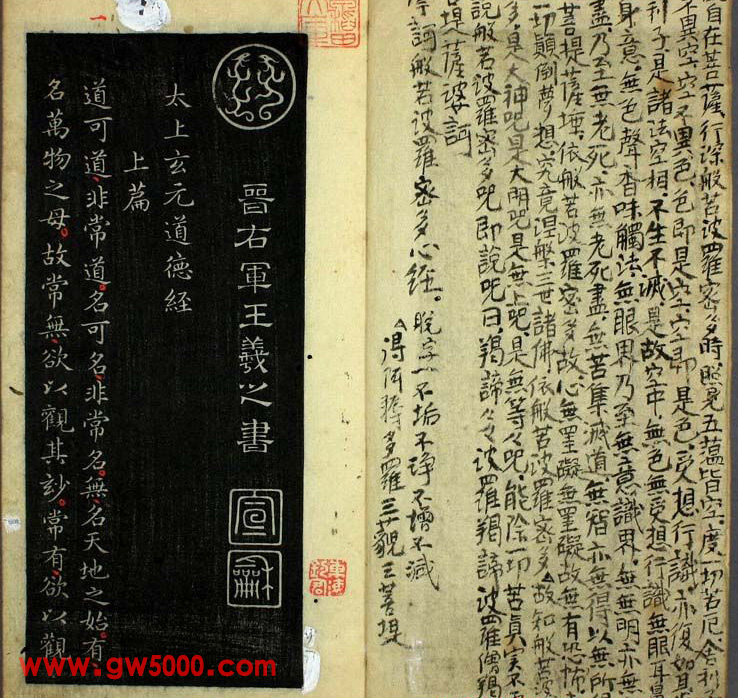 自在菩薩行深般若波羅密多時照見五蘊皆空度一切苦厄舍利
不異空空不異色色即是空空即是色受想行識亦復如是
利子是諸法空相不生不滅是故空中無色無受想行識無眼耳
身意無色聲香味觸法無眼界乃至無意識界無無明亦無
盡乃至無老死亦無老死盡無苦集滅道無智亦無得以無所
菩提薩埵依般若波羅密多故心無罣礙無罣礙故無有恐怖
一切顛倒夢想究竟涅槃三世諸佛依般若波羅密多故知般若
多是大神咒是大明咒是無上咒是無等々咒能除一切苦真實不
說般若波羅密多咒即說咒曰羯諦々々波羅羯諦波羅僧羯
菩提薩婆訶
訶般若波羅密多心經。脫字一不垢不淨不增不減
得阿耨多羅三藐三菩提
晉右軍王羲之書
宣龢
太上玄元道德經
上篇
道可道非常道。名可名非常名。無名天地之始。有
名萬物之母。故常無欲以觀其妙。常有欲以觀
www.gw5000.com